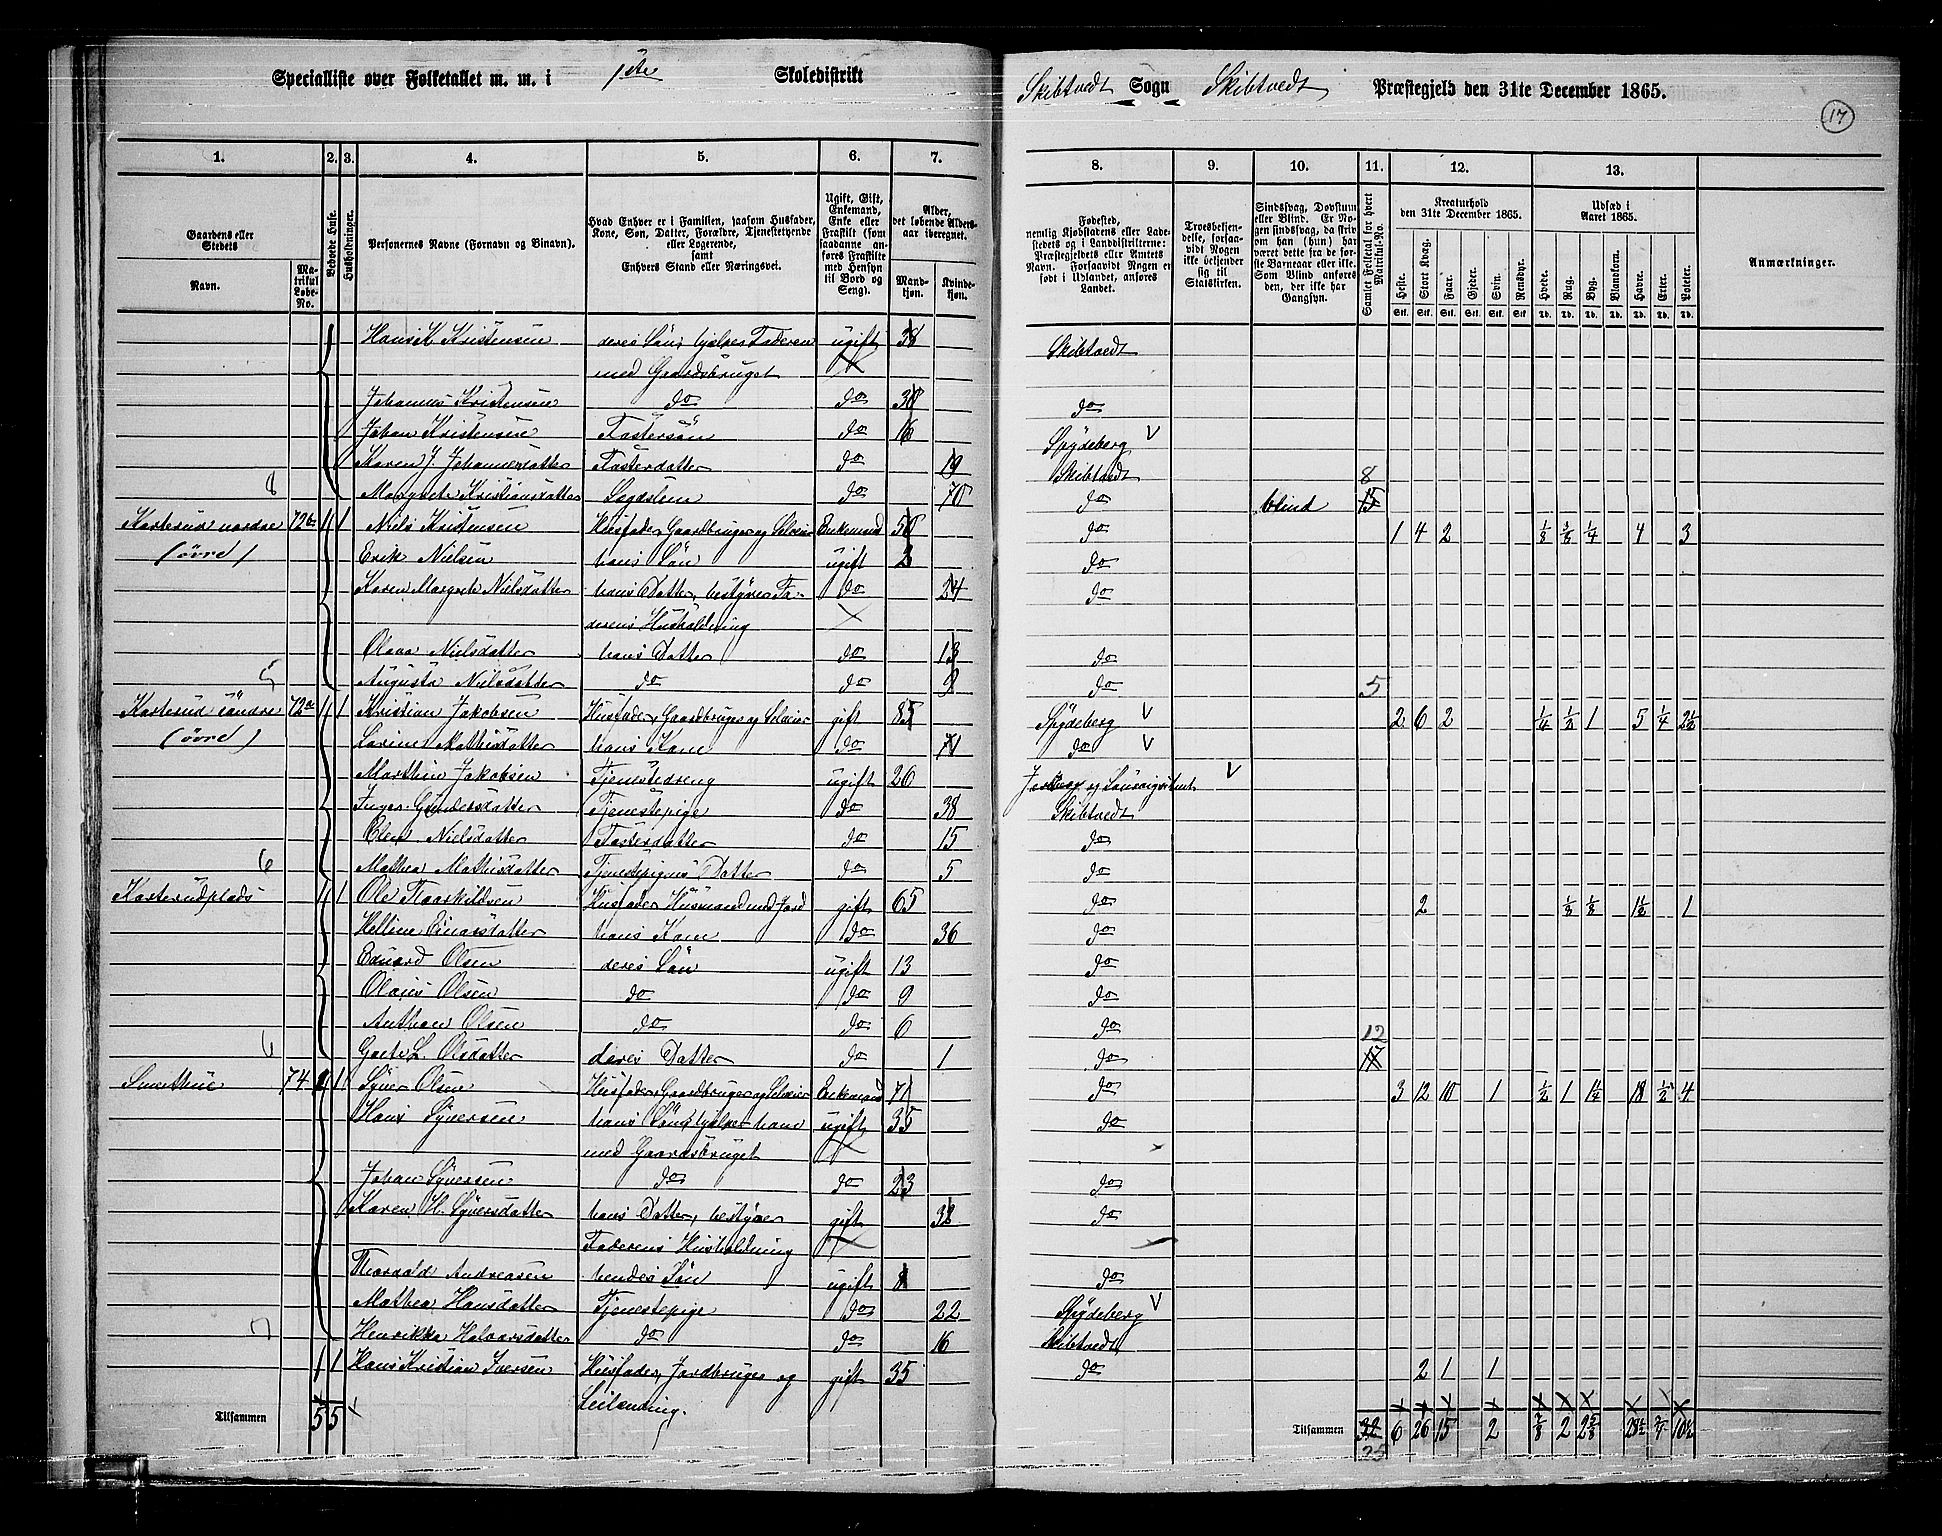 Specialliste over Folketallet m. m. i 1ste Skoledistrikt
Skibtvedt Sogn Skibtvedt Præstegjeld den 31te December 1865.
17
1. 2. 3. 4. 5. 6. 7. 8. 9. 10. 11. 12. 13.
Gaardens eller Stedets
Navn.
Matrikul Løbe-No.
Beboede Huse.
Husholdninger.
Personernes Navne (Fornavn og Binavn).
Hvad Enhver er i Familien, saasom Husfader, Kone, Søn, Datter, Forældre, Tjenestetyende eller Logerende, samt Enhvers Stand eller Næringsvei.
Ugift, Gift, Enkemand, Enke eller Fraskilt (som saadanne anføres Fraskilte med Hensyn til Bord og Seng).
Alder, det løbende Aldersaar iberegnet.
Mandkjøn.
Kvindekjøn.
Fødested, nemlig Kjøbstadens eller Ladestedets og i Landdistrikterne: Præstegjeldets eller Amtets Navn. Forsaavidt Nogen er født i Udlandet, anføres Landet.
Troesbekjendelse, forsaavidt Nogen ikke bekjender sig til Statskirken.
Sindssvag, Døvstum eller Blind. Er Nogen sindssvag, da skriv om han (hun) har været dette fra de første Barneaar eller ikke. Som Blind anføres den, der ikke har Gangsyn.
Samlet Folketal for hvert Matrikul-No.
Kreaturhold den 31te December 1865.
Heste. Stort Kvæg. Faar. Gjeder. Svin. Rensdyr.
Stk. Stk. Stk. Stk. Stk. Stk
Udsæd i Aaret 1865.
Hvede. Rug. Byg. Blandkorn. Havre. Erter. Poteter.
Td. Td. Td. Td. Td. Td. Td.
Anmærkninger.
Hans Kristensen deres Søn, hjælper Faderen ugift 38 Skibtvedt
med Gaardsbruget
Johannes Kristensen do do 30 do
Johan Kristensen Fostersøn do 16 Spydeberg V
Karen J. Johannesdatter Fosterdatter do 19 Skibtvedt 8
8 Margrete Kristiansdatter Logdslem do 70 do blind 15
Kasterud nordre 72b 1 1 Niels Kristensen Husfader, Gaardbruger og Selveier Enkemand 50 do 1 4 2 1/8 3/8 1/4 4 3
(øvre) Erik Nielsen hans Søn ugift 2 do
Karen Margrete Nielsdatter hans Datter, bestyrer Fa- do 24 do
derens Husholdning
Olava Nielsdatter hans Datter do 13 do
5 Augusta Nielsdatter do do 9 do 5
Kasterud søndre 72a 1 1 Kristian Jakobsen Husfader, Gaardbruger og Selveier gift 85 Spydeberg V 2 6 2 1/4 1/2 1 5 1/4 2 1/2
(øvre) Lorine Mathisdatter hans Kone do 71 do V
Marthin Jakobsen Tjenestedreng ugift 20 V
Inger Gundersdatter Tjenestepige do 38 Skibtvedt
Elen Nielsdatter Fosterdatter do 15 do
6 Mathea Mathisdatter Tjenestepigens Datter do 5 do
Kasterudplads 1 1 Ole Taraskildsen Husfader Husmand med Jord gift 65 do 2 1/8 1/8 1 1/2 1
Helline Einarsdatter hans Kone do 36 do
Edvard Olsen deres Søn ugift 13 do
Olaus Olsen do do 9 do
Anthon Olsen do do 6 do 12
6 Grete L. Olsdatter deres Datter do 1 do 17
Smerthue 74 1 1 Syver Olsen Husfader, Gaardbruger og Selveier Enkemand 71 do 3 12 10 1 1/2 1 1 1/4 18 1/2 4
Hans Syversen hans Søn, hjælper ham ugift 35 do
med Gaardsbruget
Johan Syversen do do 23 do
Karen H. Syversdatter hans Datter, bestyrer gift 32 do
Faderens Husholdning
Thorvald Andreasen hendes Søn ugift 8 do
Mathea Hansdatter Tjenestepige do 22 Spydeberg V
7 Henrikka Halvorsdatter do do 16 Skibtvedt
1 1 Hans Kristian Iversen Husfader, Jordbruger og gift 35 do 2 1 1
Leilending.
Tilsammen 5 5 Tilsammen 32 6 26 15 2 7/8 2 2 5/8 28 1/2 3/4 10 1/2
25